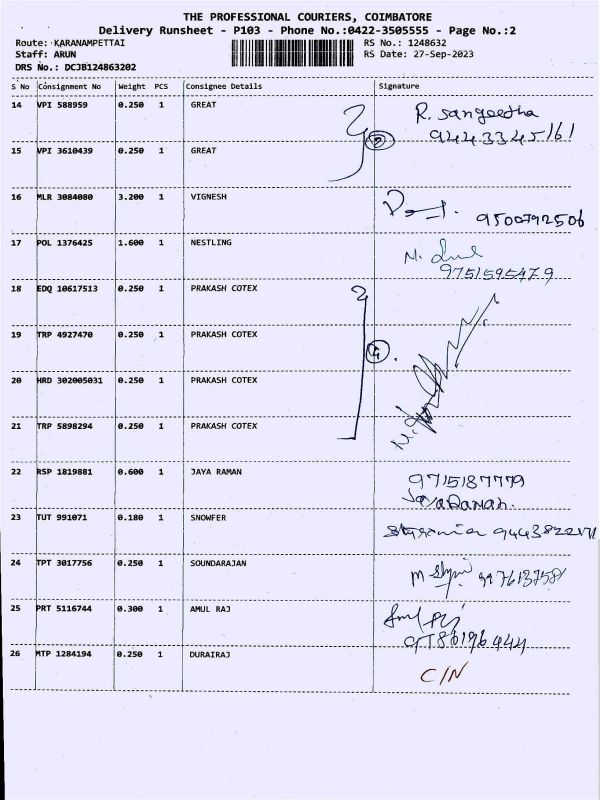 THE PROFESSIONAL COURIERS, COIMBATORE
Delivery Runsheet - P103 - Phone No.:0422-3505555 - Page No.:2
Route: KARANAMPETTAI RS No.: 1248632
Staff: ARUN RS Date: 27-Sep-2023
DRS No.: DCJB124863202
S No Consignment No Weight PCS Consignee Details Signature
14 VPI 588959 0.250 1 GREAT R. Sangeetha
2 9443345161
15 VPI 3610439 0.250 1 GREAT
16 MLR 3084080 3.200 1 VIGNESH
9500792506
17 POL 1376425 1.600 1 NESTLING N.
9751595479
18 EDQ 10617513 0.250 1 PRAKASH COTEX
19 TRP 4927470 0.250 1 PRAKASH COTEX
4
20 HRD 302005031 0.250 1 PRAKASH COTEX
21 TRP 5898294 0.250 1 PRAKASH COTEX N.
22 RSP 1819881 0.600 1 JAYA RAMAN 9715187779
JayaRaman.
23 TUT 991071 0.180 1 SNOWFER
24 TPT 3017756 0.250 1 SOUNDARAJAN M
25 PRT 5116744 0.300 1 AMUL RAJ
26 MTP 1284194 0.250 1 DURAIRAJ C/N